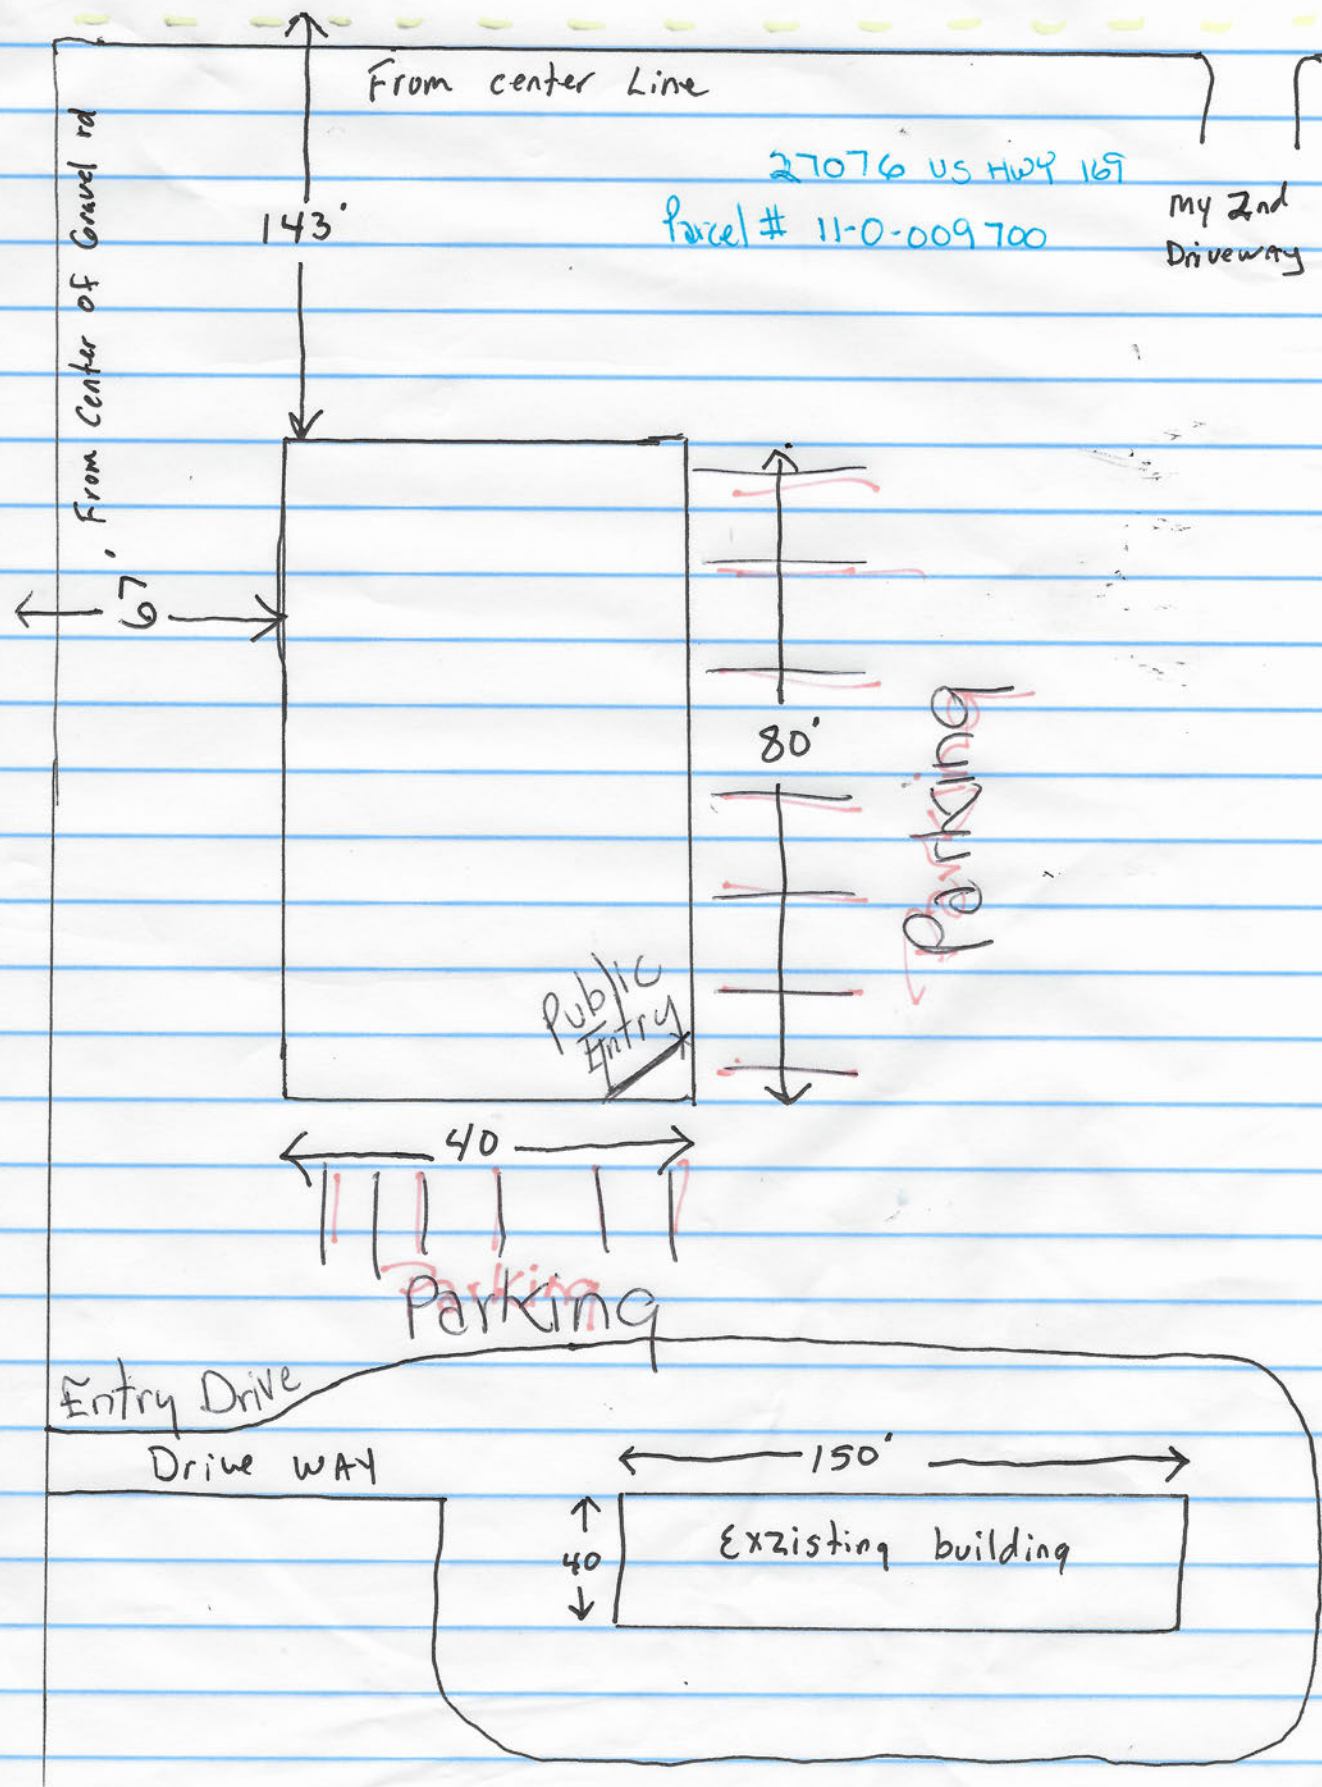 From center Line
27076 US HWY 169
Parcel # 11-0-009700
My 2nd
Driveway
143'
67' From Center of Gravel rd
80'
Parking
Public
Entry
40
Parking
Entry Drive
Drive WAY
150'
40
Exzisting building